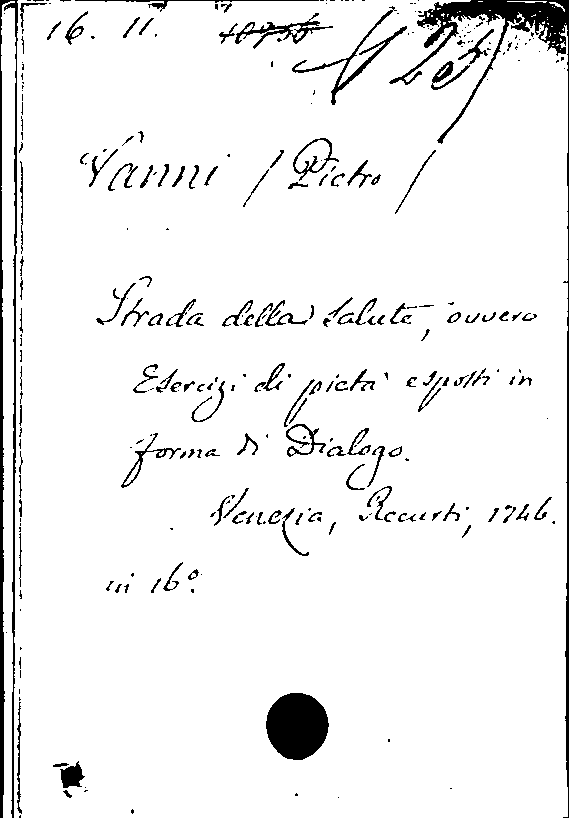 16. 11.
Vanni (Pietro)
Strada della salute, ovvero
Esercizi di pietà esposti in
forma di Dialogo.
Venezia, Recurti, 1746.
in 16º.